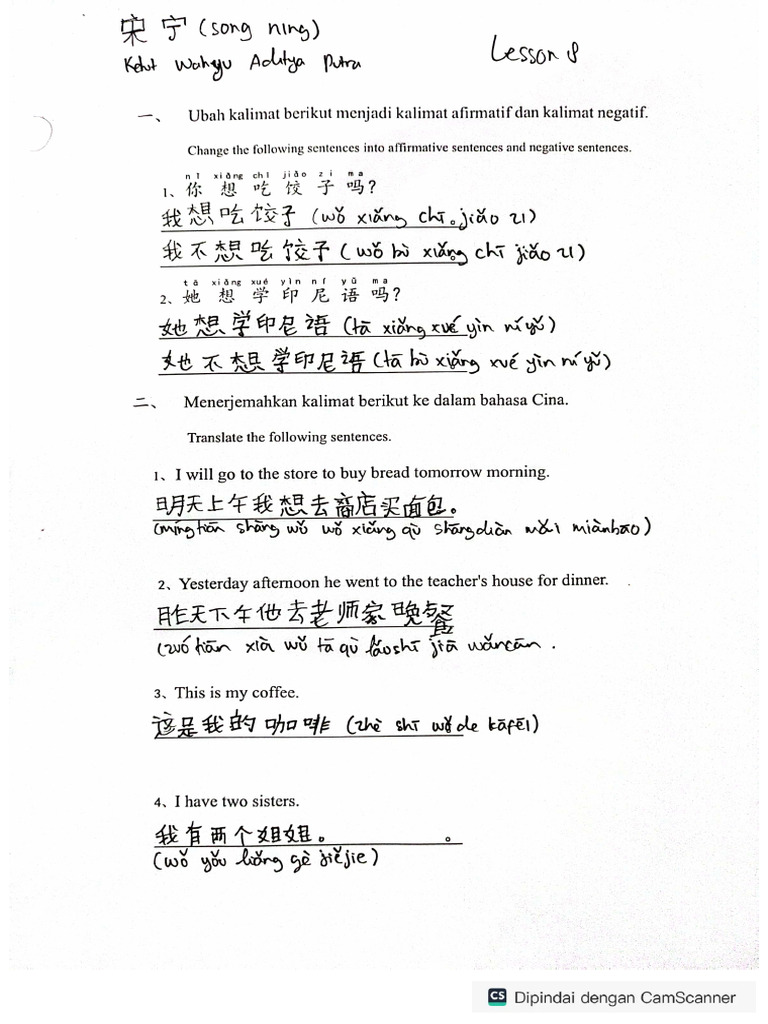 宋宁 (song ning)
Ketut Wahyu Aditya Putra
Lesson 8
一、 Ubah kalimat berikut menjadi kalimat afirmatif dan kalimat negatif.
Change the following sentences into affirmative sentences and negative sentences.
nǐ xiǎng chī jiǎo zi ma
1、你想吃饺子吗?
我想吃饺子 (wǒ xiǎng chī jiǎo zi)
我不想吃饺子 (wǒ bù xiǎng chī jiǎo zi)
tā xiǎng xué yìn ní yǔ ma
2、她想学印尼语吗?
她想学印尼语 (tā xiǎng xué yìn ní yǔ)
她不想学印尼语 (tā bù xiǎng xué yìn ní yǔ)
二、 Menerjemahkan kalimat berikut ke dalam bahasa Cina.
Translate the following sentences.
1、I will go to the store to buy bread tomorrow morning.
明天上午我想去商店买面包。
(míng tiān shàng wǔ wǒ xiǎng qù shāngdiàn mǎi miànbāo)
2、Yesterday afternoon he went to the teacher's house for dinner.
昨天下午他去老师家晚餐
(zuó tiān xià wǔ tā qù lǎoshī jiā wǎncān .
3、This is my coffee.
这是我的咖啡 (zhè shī wǒ de kāfēi)
4、I have two sisters.
我有两个姐姐。 。
(wǒ yǒu liǎng gè jiějie)
CS Dipindai dengan CamScanner